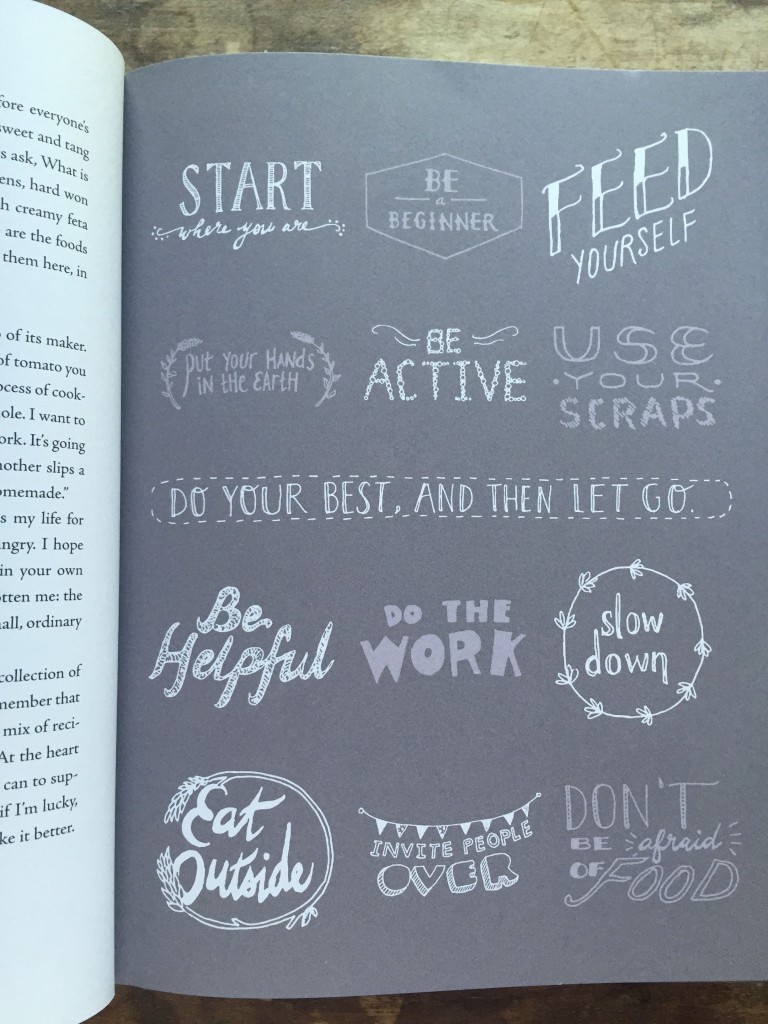 fore everyone's
sweet and tang
s ask, What is
ens, hard won
h creamy feta
are the foods
them here, in
of its maker.
of tomato you
ocess of cook-
ole. I want to
ork. It's going
nother slips a
omemade."
s my life for
ngry. I hope
in your own
otten me: the
all, ordinary
collection of
member that
mix of reci-
At the heart
can to sup-
if I'm lucky,
ke it better.
START
where you are
BE
a
BEGINNER
FEED
YOURSELF
put your HANDS
IN the EARTH
BE
ACTIVE
USE
YOUR
SCRAPS
DO YOUR BEST, AND THEN LET GO.
Be
Helpful
DO THE
WORK
slow
down
Eat
Outside
INVITE PEOPLE
OVER
DON'T
BE afraid
OF FOOD